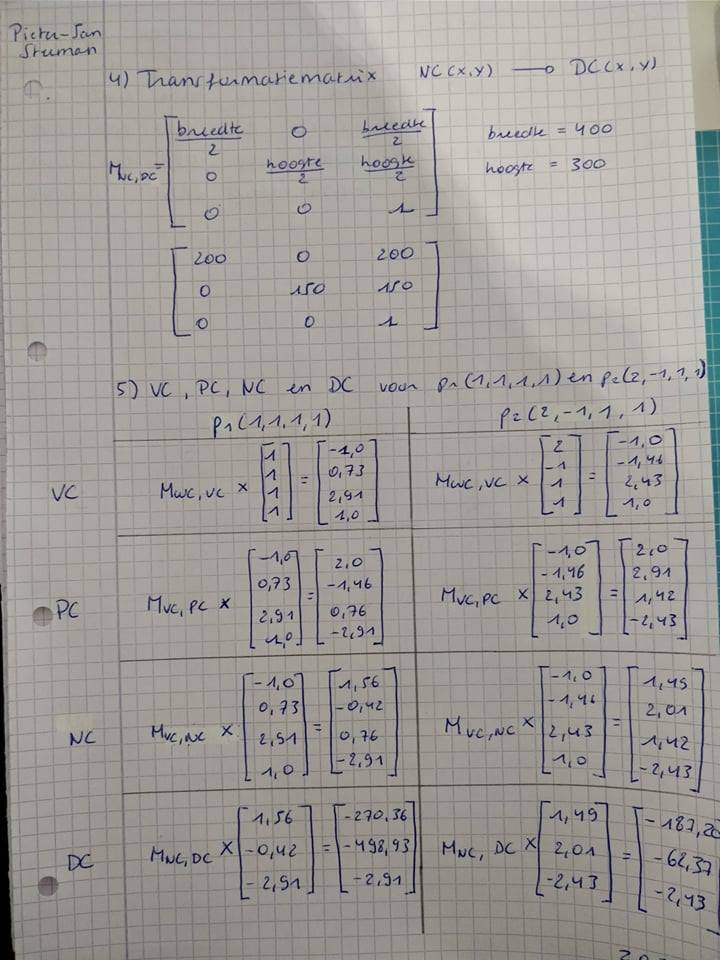 Pieter-Jan
Struman
4) Transformatiematrix NC(x,y) —o DC(x,y)
M_NC,DC = [breedte/2 0 breedte/2] breedte = 400
[0 hoogte/2 hoogte/2] hoogte = 300
[0 0 1]
[200 0 200]
[0 150 150]
[0 0 1]
5) VC, PC, NC en DC voor p1(1,1,1,1) en p2(2,-1,1,1)
p1(1,1,1,1) p2(2,-1,1,1)
VC M_WC,VC × [1 1 1 1] = [-1,0 0,73 2,91 1,0] M_WC,VC × [2 -1 1 1] = [-1,0 -1,46 2,43 1,0]
PC M_VC,PC × [-1,0 0,73 2,91 1,0] = [2,0 -1,46 0,76 -2,91] M_VC,PC × [-1,0 -1,46 2,43 1,0] = [2,0 2,91 1,42 -2,43]
NC M_VC,NC × [-1,0 0,73 2,91 1,0] = [1,56 -0,42 0,76 -2,91] M_VC,NC × [-1,0 -1,46 2,43 1,0] = [1,49 2,01 1,42 -2,43]
DC M_NC,DC × [1,56 -0,42 -2,91] = [-270,36 -498,93 -2,91] M_NC,DC × [1,49 2,01 -2,43] = [-187,20 -62,37 -2,43]